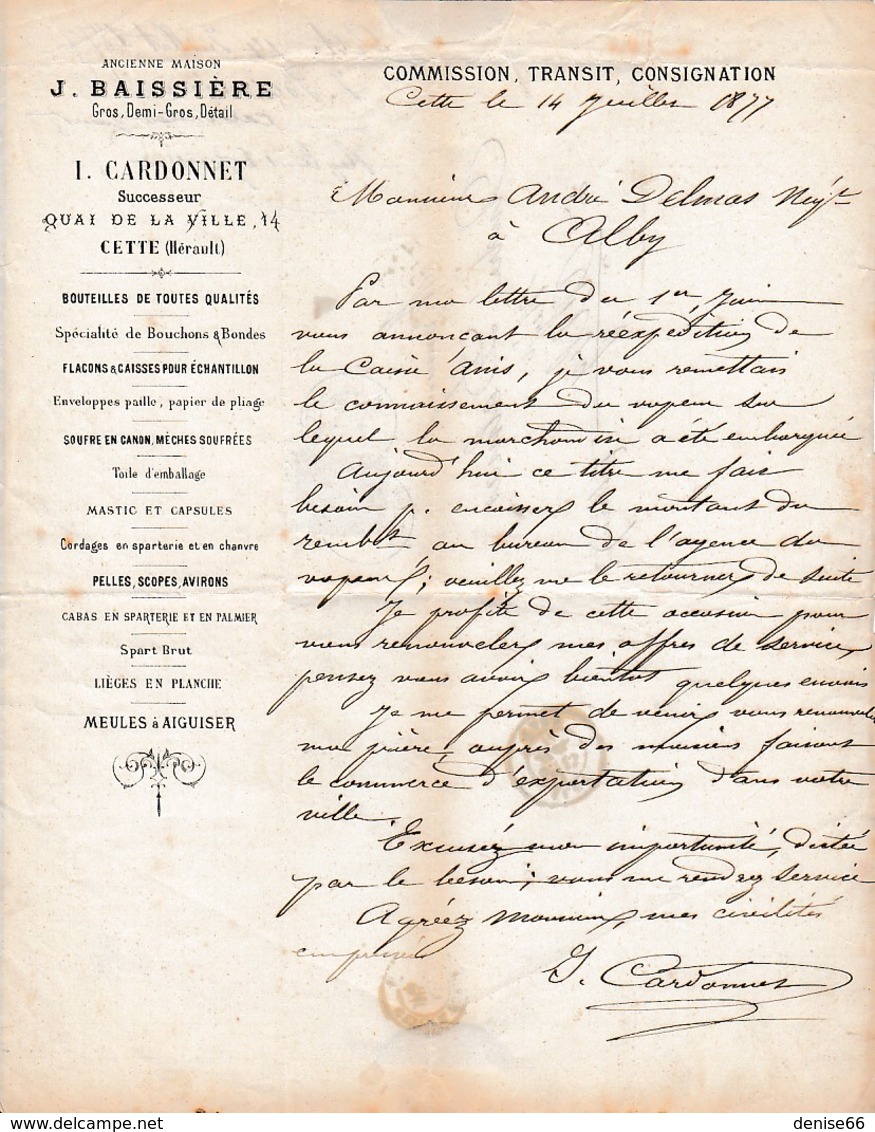 ANCIENNE MAISON
J. BAISSIÈRE
Gros, Demi-Gros, Détail
I. CARDONNET
Successeur
QUAI DE LA VILLE, 14
CETTE (Hérault)
BOUTEILLES DE TOUTES QUALITÉS
Spécialité de Bouchons & Bondes
FLACONS & CAISSES POUR ÉCHANTILLON
Enveloppes paille, papier de pliage
SOUFRE EN CANON, MÈCHES SOUFRÉES
Toile d'emballage
MASTIC ET CAPSULES
Cordages en sparterie et en chanvre
PELLES, SCOPES, AVIRONS
CABAS EN SPARTERIE ET EN PALMIER
Spart Brut
LIÈGES EN PLANCHE
MEULES à AIGUISER
COMMISSION, TRANSIT, CONSIGNATION
Cette le 14 Juillet 1877
Monsieur André Delmas Négt
à Alby
Par ma lettre du 1er Juin
vous annonçant la réexpédition de
la Caisse anis, je vous remettais
le connaissement du vapeur sur
lequel la marchandise a été embarquée
Aujourd'hui ce titre me fait
besoin p. encaisser le montant du
rembt au bureau de l'agence du
vapeur; veuillez me le retourner de suite
Je profite de cette occasion pour
vous renouveler mes offres de service
pensez vous avoir bientot quelques envois
Je me permet de venir vous renouveler
ma prière, auprès des maisons faisant
le commerce d'exportation dans votre
ville.
Excusez mon importunité, dictée
par le besoin; vous me rendrez service
Agréez Monsieur, mes civilités
empressées
I. Cardonnet
delcampe.net
denise66